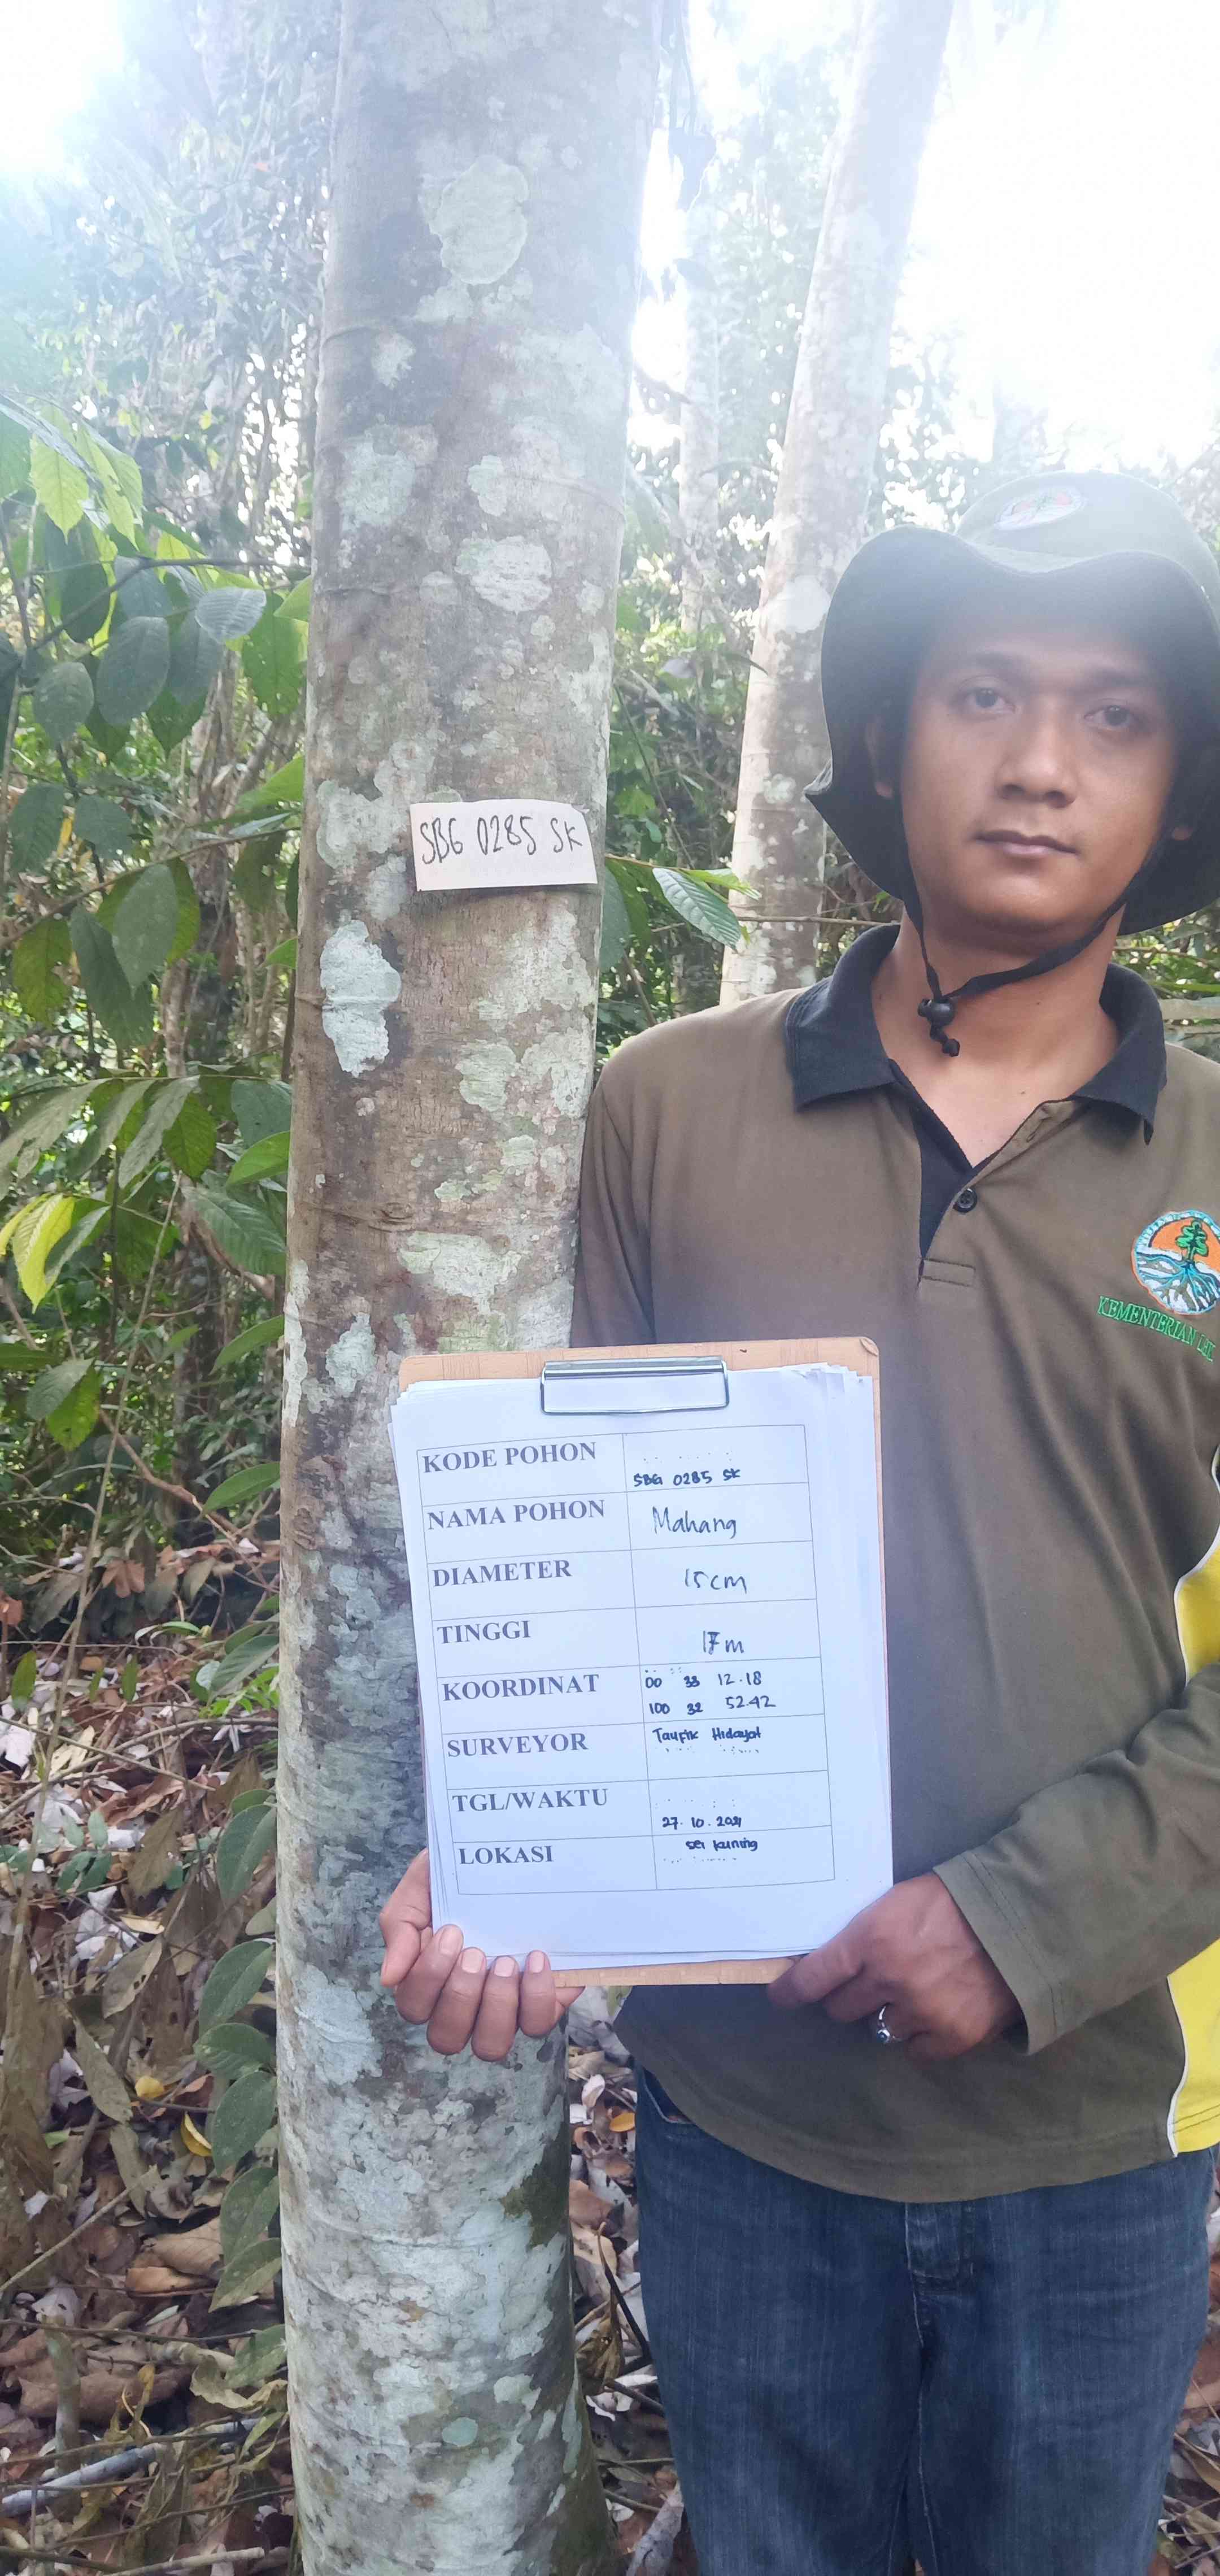 SBG 0285 SK
KEMENTERIAN LHK
KODE POHON
SBG 0285 SK
NAMA POHON
Mahang
DIAMETER
15cm
TINGGI
17m
KOORDINAT
00 33 12.18
100 32 52.42
SURVEYOR
Taufik Hidayat
TGL/WAKTU
27.10.2021
LOKASI
sei kuning